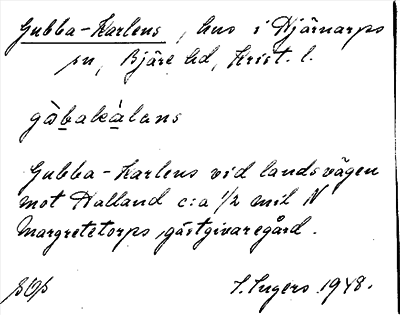 Gubba-Karlens, hus i Hjärnarps
sn, Bjäre hd, Krist. l.
gàbakálans
Gubba-Karlens vid landsvägen
mot Halland c:a 1/2 mil N
Margretetorps gästgivaregård.
I. Ingers 1948.